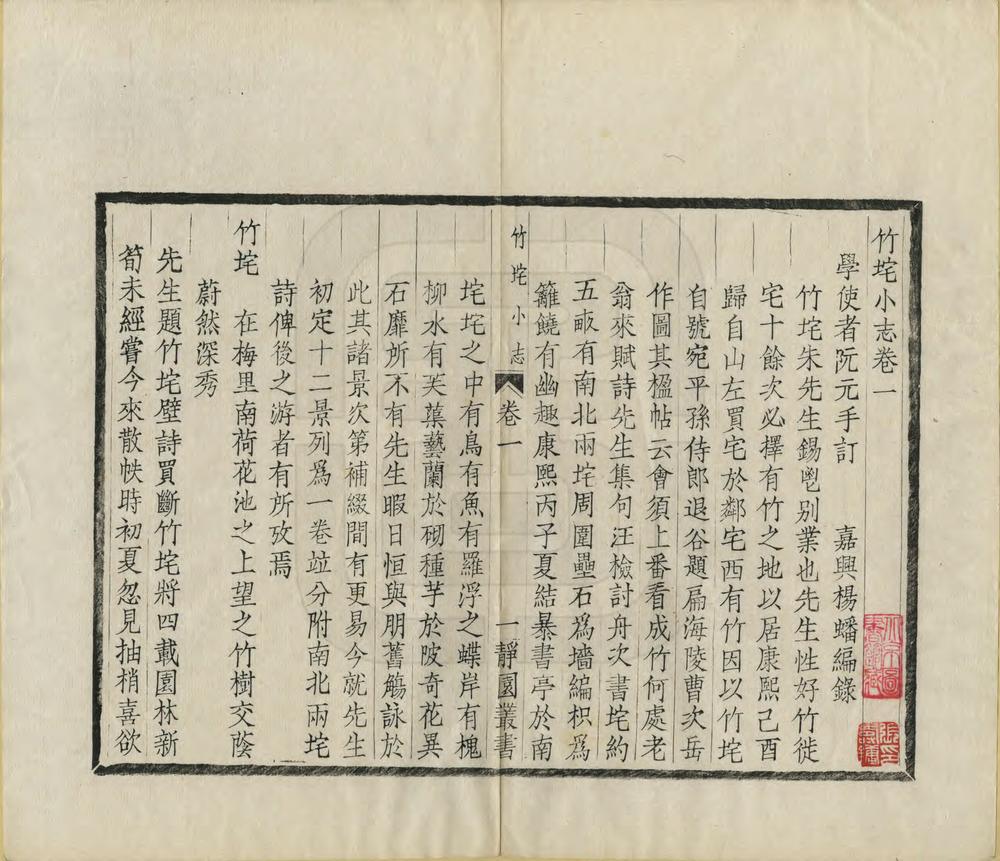 竹垞小志卷一
學使者阮元手訂　嘉興楊蟠編錄
竹垞朱先生錫鬯别業也先生性好竹徙
宅十餘次必擇有竹之地以居康熙己酉
歸自山左買宅於鄰宅西有竹因以竹垞
自號宛平孫侍郎退谷題扁海陵曹次岳
作圖其楹帖云會須上番看成竹何處老
翁來賦詩先生集句汪檢討舟次書垞約
五畞有南北兩垞周圍壘石爲墻編枳爲
籬饒有幽趣康熙丙子夏結暴書亭於南
竹垞小志　卷一　一　靜園叢書
垞垞之中有鳥有魚有羅浮之蝶岸有槐
柳水有芙蕖藝蘭於砌種芋於陂奇花異
石靡所不有先生暇日恒與朋舊觴詠於
此其諸景次第補綴間有更易今就先生
初定十二景列爲一卷竝分附南北兩垞
詩俾後之游者有所攷焉
竹垞　在梅里南荷花池之上望之竹樹交蔭
蔚然深秀
先生題竹垞壁詩買斷竹垞將四載園林新
筍未經嘗今來散帙時初夏忽見抽梢喜欲